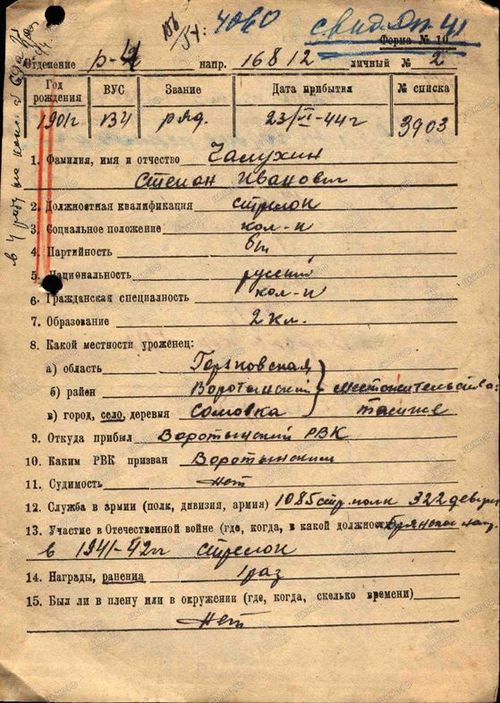 4060
Форма № 10
Отделение р-4 напр. 16812 личный № 2
Год рождения ВУС Звание Дата прибытия № списка
1901г 134 ряд. 23/VI-44г 3903
1. Фамилия, имя и отчество
Степан Иванович
2. Должностная квалификация стрелок
3. Социальное положение кол-к
4. Партийность б/п
5. Национальность русский
6. Гражданская специальность кол-к
7. Образование 2 кл.
8. Какой местности уроженец:
а) область Горьковская
б) район Воротынский местожительство
в) город, село, деревня Сомовка также
9. Откуда прибыл Воротынский РВК
10. Каким РВК призван Воротынским
11. Судимость нет
12. Служба в армии (полк, дивизия, армия) 1085 стр. полк 322 дивизия
13. Участие в Отечественной войне (где, когда, в какой должнос Брянское напр.
в 1941-42гг стрелок
14. Награды, ранения 1 раз
15. Был ли в плену или в окружении (где, когда, сколько времени)
Нет